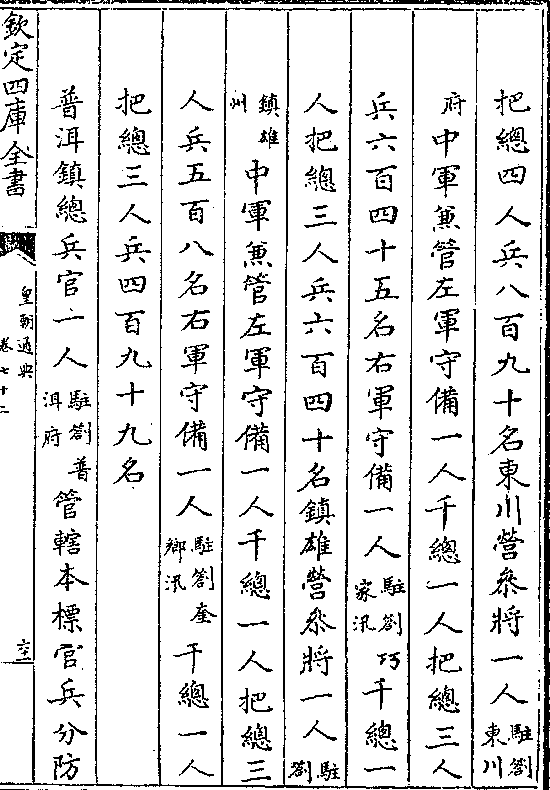 把總四人兵八百九十名東川營叅將一人駐劄東川
府中軍兼管左軍守備一人千總一人把總三人
兵六百四十五名右軍守備一人駐劄巧家汛千總一
人把總三人兵六百四十名鎮雄營叅將一人駐劄
鎮雄州中軍兼管左軍守備一人千總一人把總三
人兵五百八名右軍守備一人駐劄奎鄉汛千總一人
把總三人兵四百九十九名
普洱鎮總兵官一人駐劄普洱府管轄本標官兵分防
欽定四庫全書
皇朝通典
卷七十二